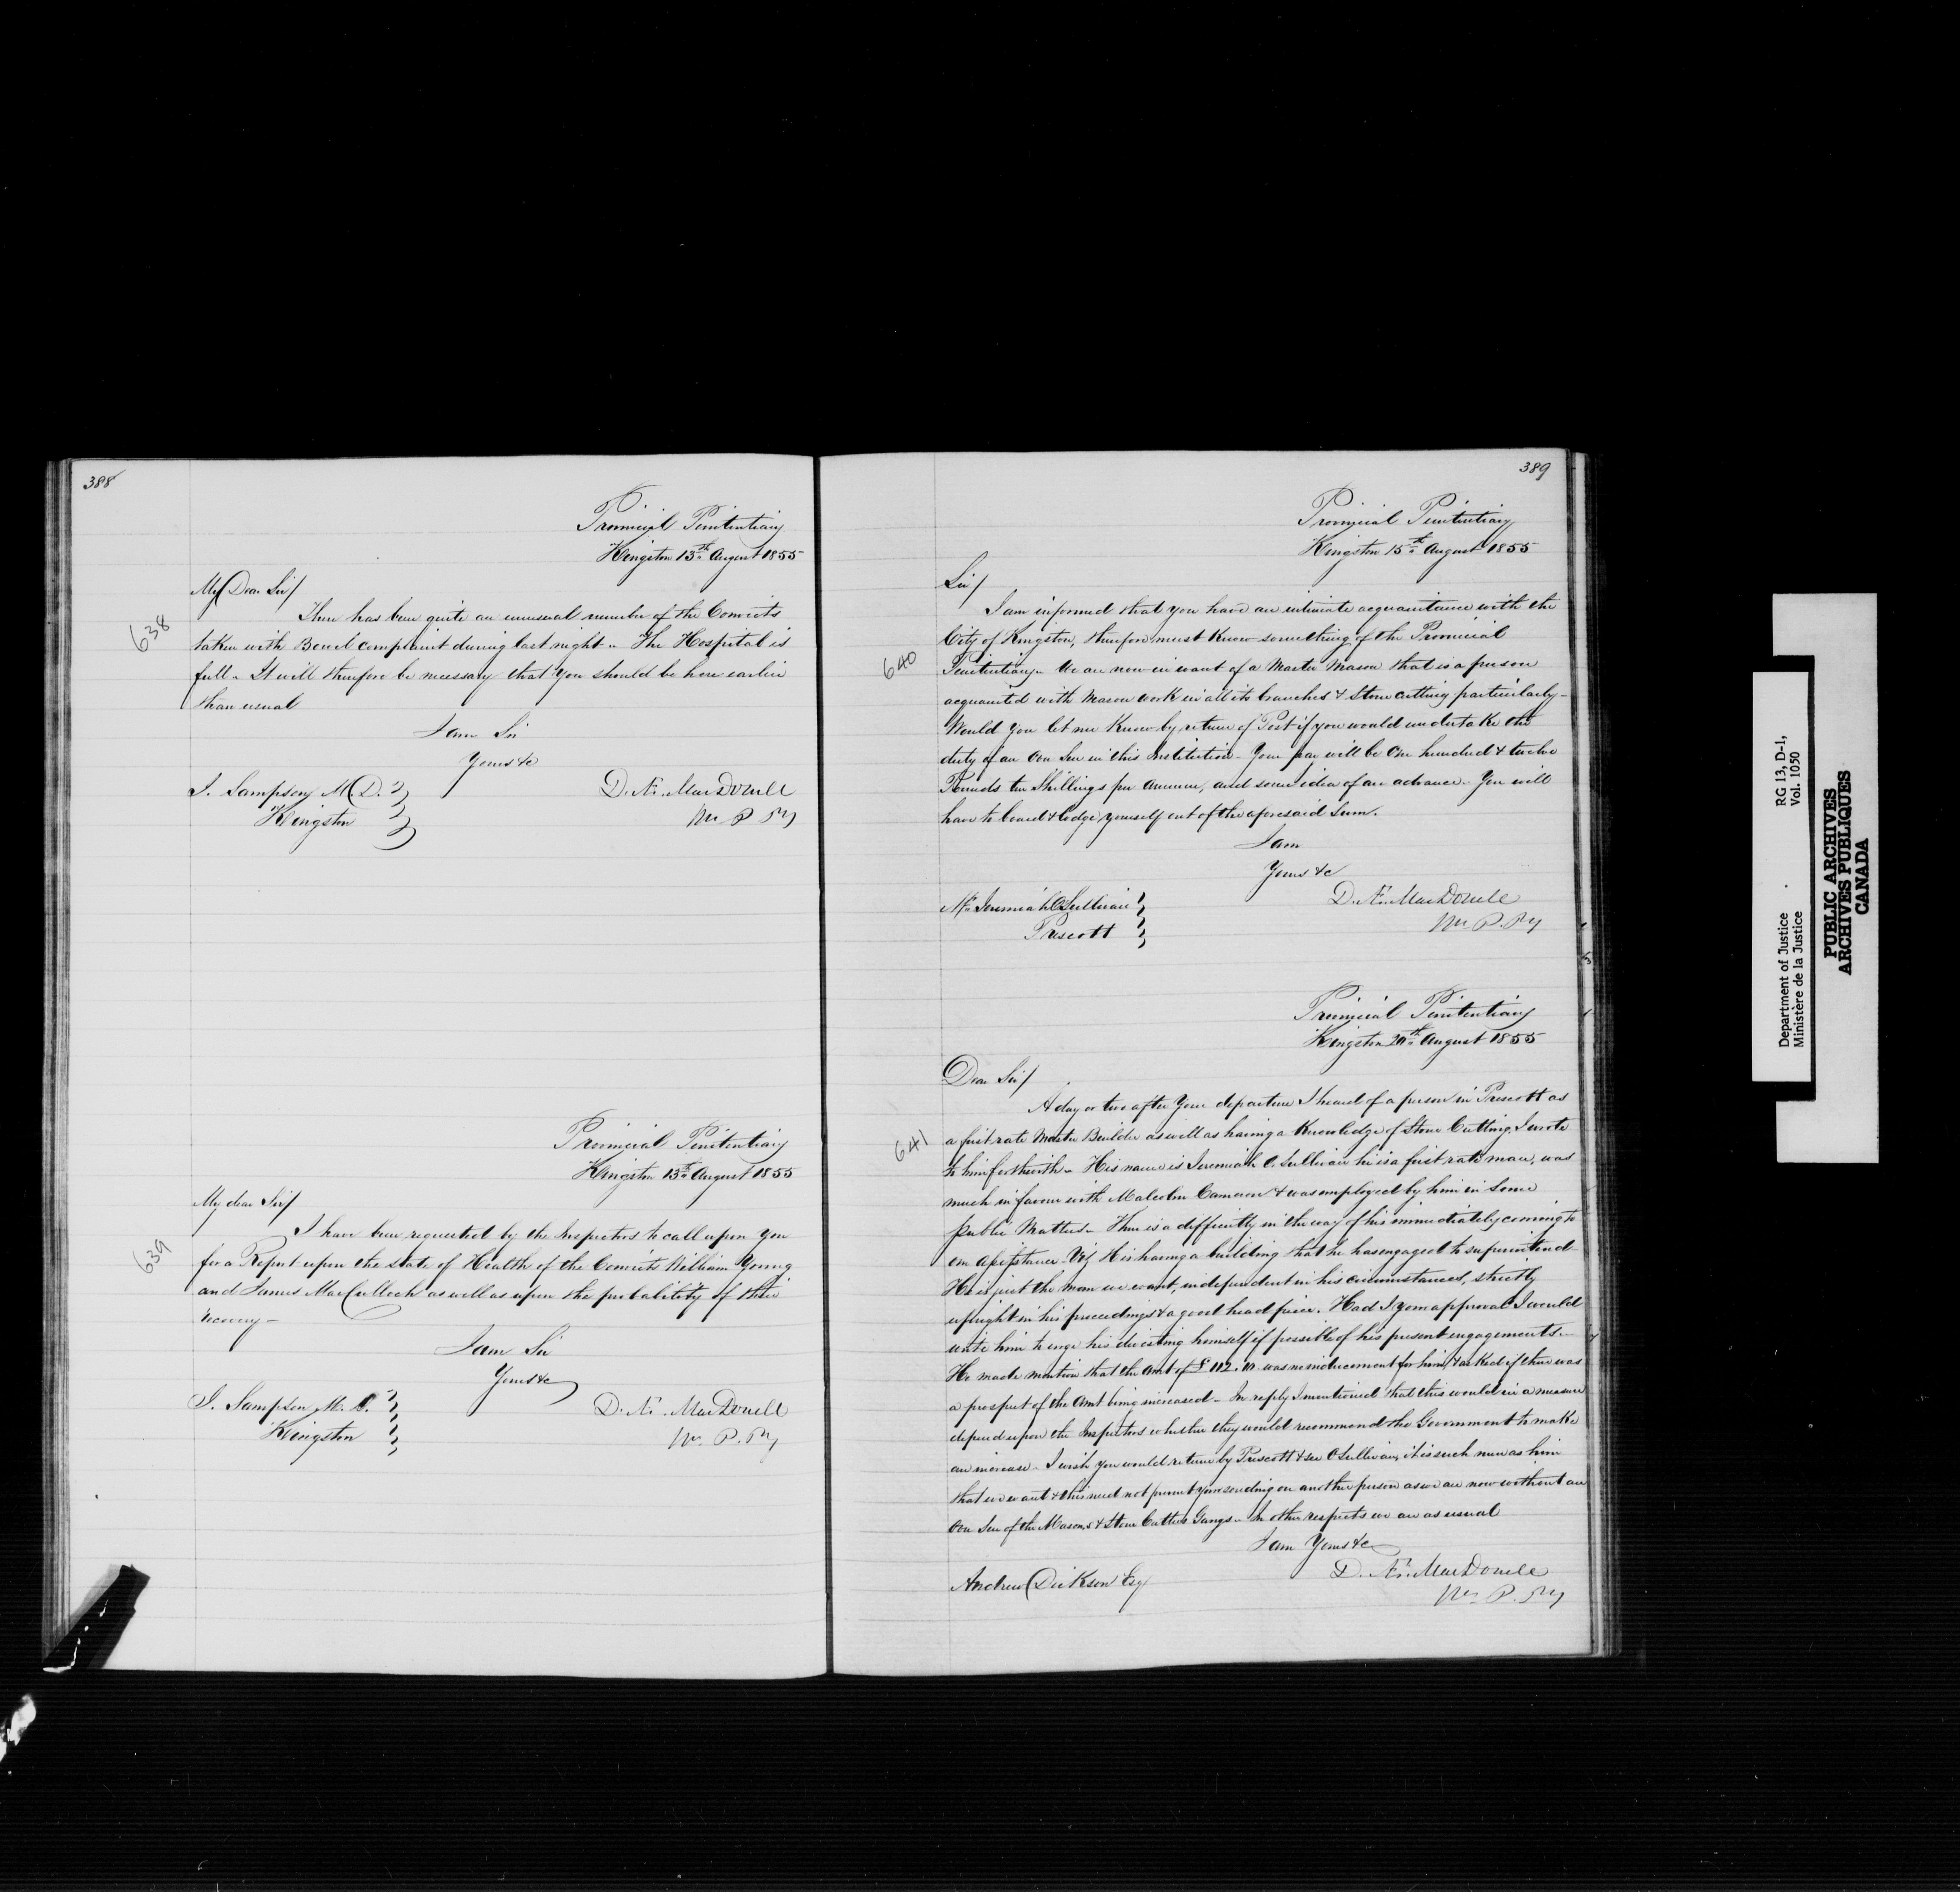 388
Provincial Penitentiary
Kingston 13th August 1855
My Dear Sir/
638
There has been quite an unusual number of the Convicts
taken with Bowel complaint during last night - The Hospital is
full - It will therefore be necessary that you should be here earlier
than usual
I am Sir
Yours &c
J. Sampson M.D.
Kingston
D. Æ. MacDonell
Wn P. Py
Provincial Penitentiary
Kingston 13th August 1855
My dear Sir/
639
I have been requested by the Inspectors to call upon you
for a Report upon the state of Health of the Convicts William Young
and James MacCulloch as well as upon the probability of their
recovery -
I am Sir
Yours &c
J. Sampson M.D.
Kingston
D. Æ. MacDonell
Wn. P. Py
389
Provincial Penitentiary
Kingston 15th August 1855
Sir/
640
I am informed that you have an intimate acquaintance with the
City of Kingston, therefore must know something of the Provincial
Penitentiary - We are now in want of a Master Mason that is a person
acquainted with Mason work in all its branches & Stone cutting particularly -
Would you let me know by return of Post if you would undertake the
duty of an Over Seer in this Institution - Your pay will be One hundred & twelve
Pounds ten Shillings per annum, and some idea of an advance - You will
have to board & lodge yourself out of the aforesaid Sum.
I am
Yours &c
Mr. Jeremiah O Sullivan
Prescott
D. Æ. MacDonell
Wn. P. Py
Provincial Penitentiary
Kingston 20th August 1855
Dear Sir/
641
A day or two after Your departure I heard of a person in Prescott as
a first rate Master Builder as well as having a Knowledge of Stone Cutting, I wrote
to him forthwith - His name is Jeremiah O. Sullivan he is a first rate man, was
much in favour with Malcolm Cameron & was employed by him in Some
public Matters - There is a difficulty in the way of his immediately coming to
our assistance - Viz His having a building that he has engaged to superintend -
He is just the man we want, independent in his circumstances, strictly
upright in his proceedings & a good head piece. Had I your approval I would
write him to urge his divesting himself if possible of his present engagements -
He made mention that the amt of £112.10. was no inducement for him, & asked if there was
a prospect of the Amt being increased - In reply I mentioned that this would in a measure
depend upon the Inspectors whether they would recommend the Government to make
an increase - I wish you would return by Prescott & see O Sullivan, it is such men as him
that we want & this need not prevent your sending on another person as we are now without an
Over Seer of the Masons & Stone Cutters Gangs - In other respects we are as usual
I am Yours &c
Andrew Dickson Esq
D. Æ. MacDonell
Wn. P. Py
RG 13, D-1,
Vol. 1050
Department of Justice
Ministère de la Justice
PUBLIC ARCHIVES
ARCHIVES PUBLIQUES
CANADA